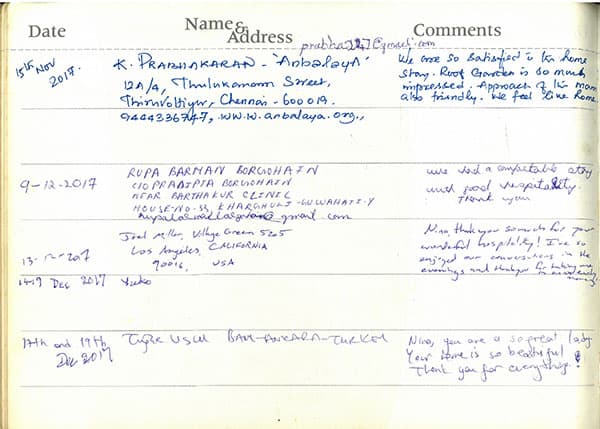 Date
Name & Address
Comments
15th Nov 2017.
K. PRABHAKARAN - 'Anbalaya'
prabha247@gmail.com
12A/4, Thulukanam Street,
Thiruvottiyur, Chennai - 600019.
9444336747, www.anbalaya.org.,
We are so satisfied in this home
stay. Roof Garden is so much
impressed. Approach of this mam
also friendly. We feel like home.
9-12-2017
RUPA BARMAN BORGOHAIN
C/O PRADIPTA BORGOHAIN
NEAR BARTHAKUR CLINIC
HOUSE-NO-59, KHARGHULI-GUWAHATI-4
@gmail.com
We had a comfortable stay
with good hospitality.
Thank you
13-12-2017
Joel Miller, Village Green 5205
Los Angeles, CALIFORNIA
90016, USA
Nino, thank you so much for your
wonderful hospitality! I've so
enjoyed our conversations in the
evenings and thank you for taking me
Dec 2017
Yuko
17th and 19th
Dec 2017
Tuğçe USLU BALI-ANKARA-TURKEY
Nino, you are a so great lady
Your home is so beautiful
Thank you for everything!